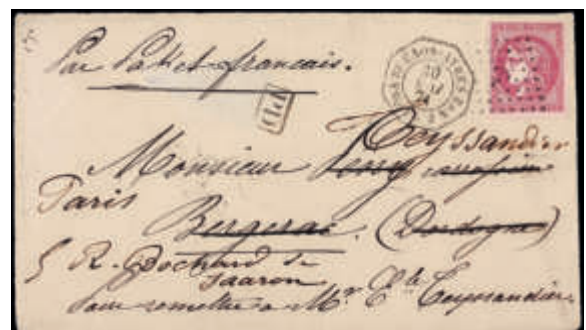 Par Paket francais.
PD
BUENOS-AYRES
Teyssandier
Monsieur
Paris
Bergerac. (Dordogne)
5 R. Bochard de
Saaron
Pour remettre a Mr Teyssandier